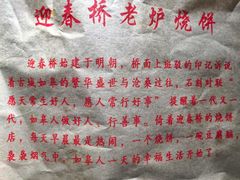 迎春桥老炉烧饼
迎春桥始建于明朝，桥面上斑驳的印记诉说
着古城如皋的繁华盛世与沧桑过往，石刻对联“
愿天常生好人，愿人常行好事”提醒着一代又一
代，如皋人做好人、行善事。倚着迎春桥的烧饼
店，每天早晨最是热闹，一个烧饼，一碗豆腐脑，
袅袅烟气中，如皋人一天的幸福生活开始了